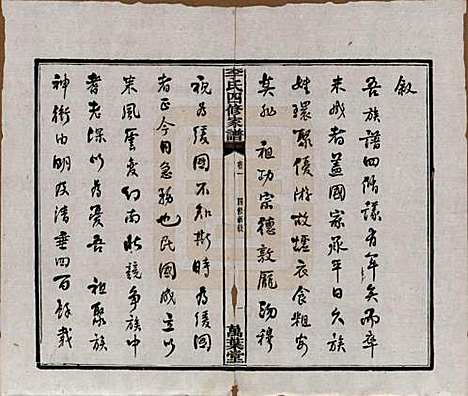 敘
吾族譜四脩議有年矣而卒
未成者蓋國家承平日久族
姓環聚優游故煙衣食粗安
莫非　祖功宗德敦龐沕穆
李氏四修家譜
卷一
四修新敘
一
萬葉堂
視為緩圖不知斯時為緩圖
者正今日急務也民國成立以
來風雲變幻南北競爭族中
耆老深以為憂吾　祖聚族
神衝由明及清垂四百餘載